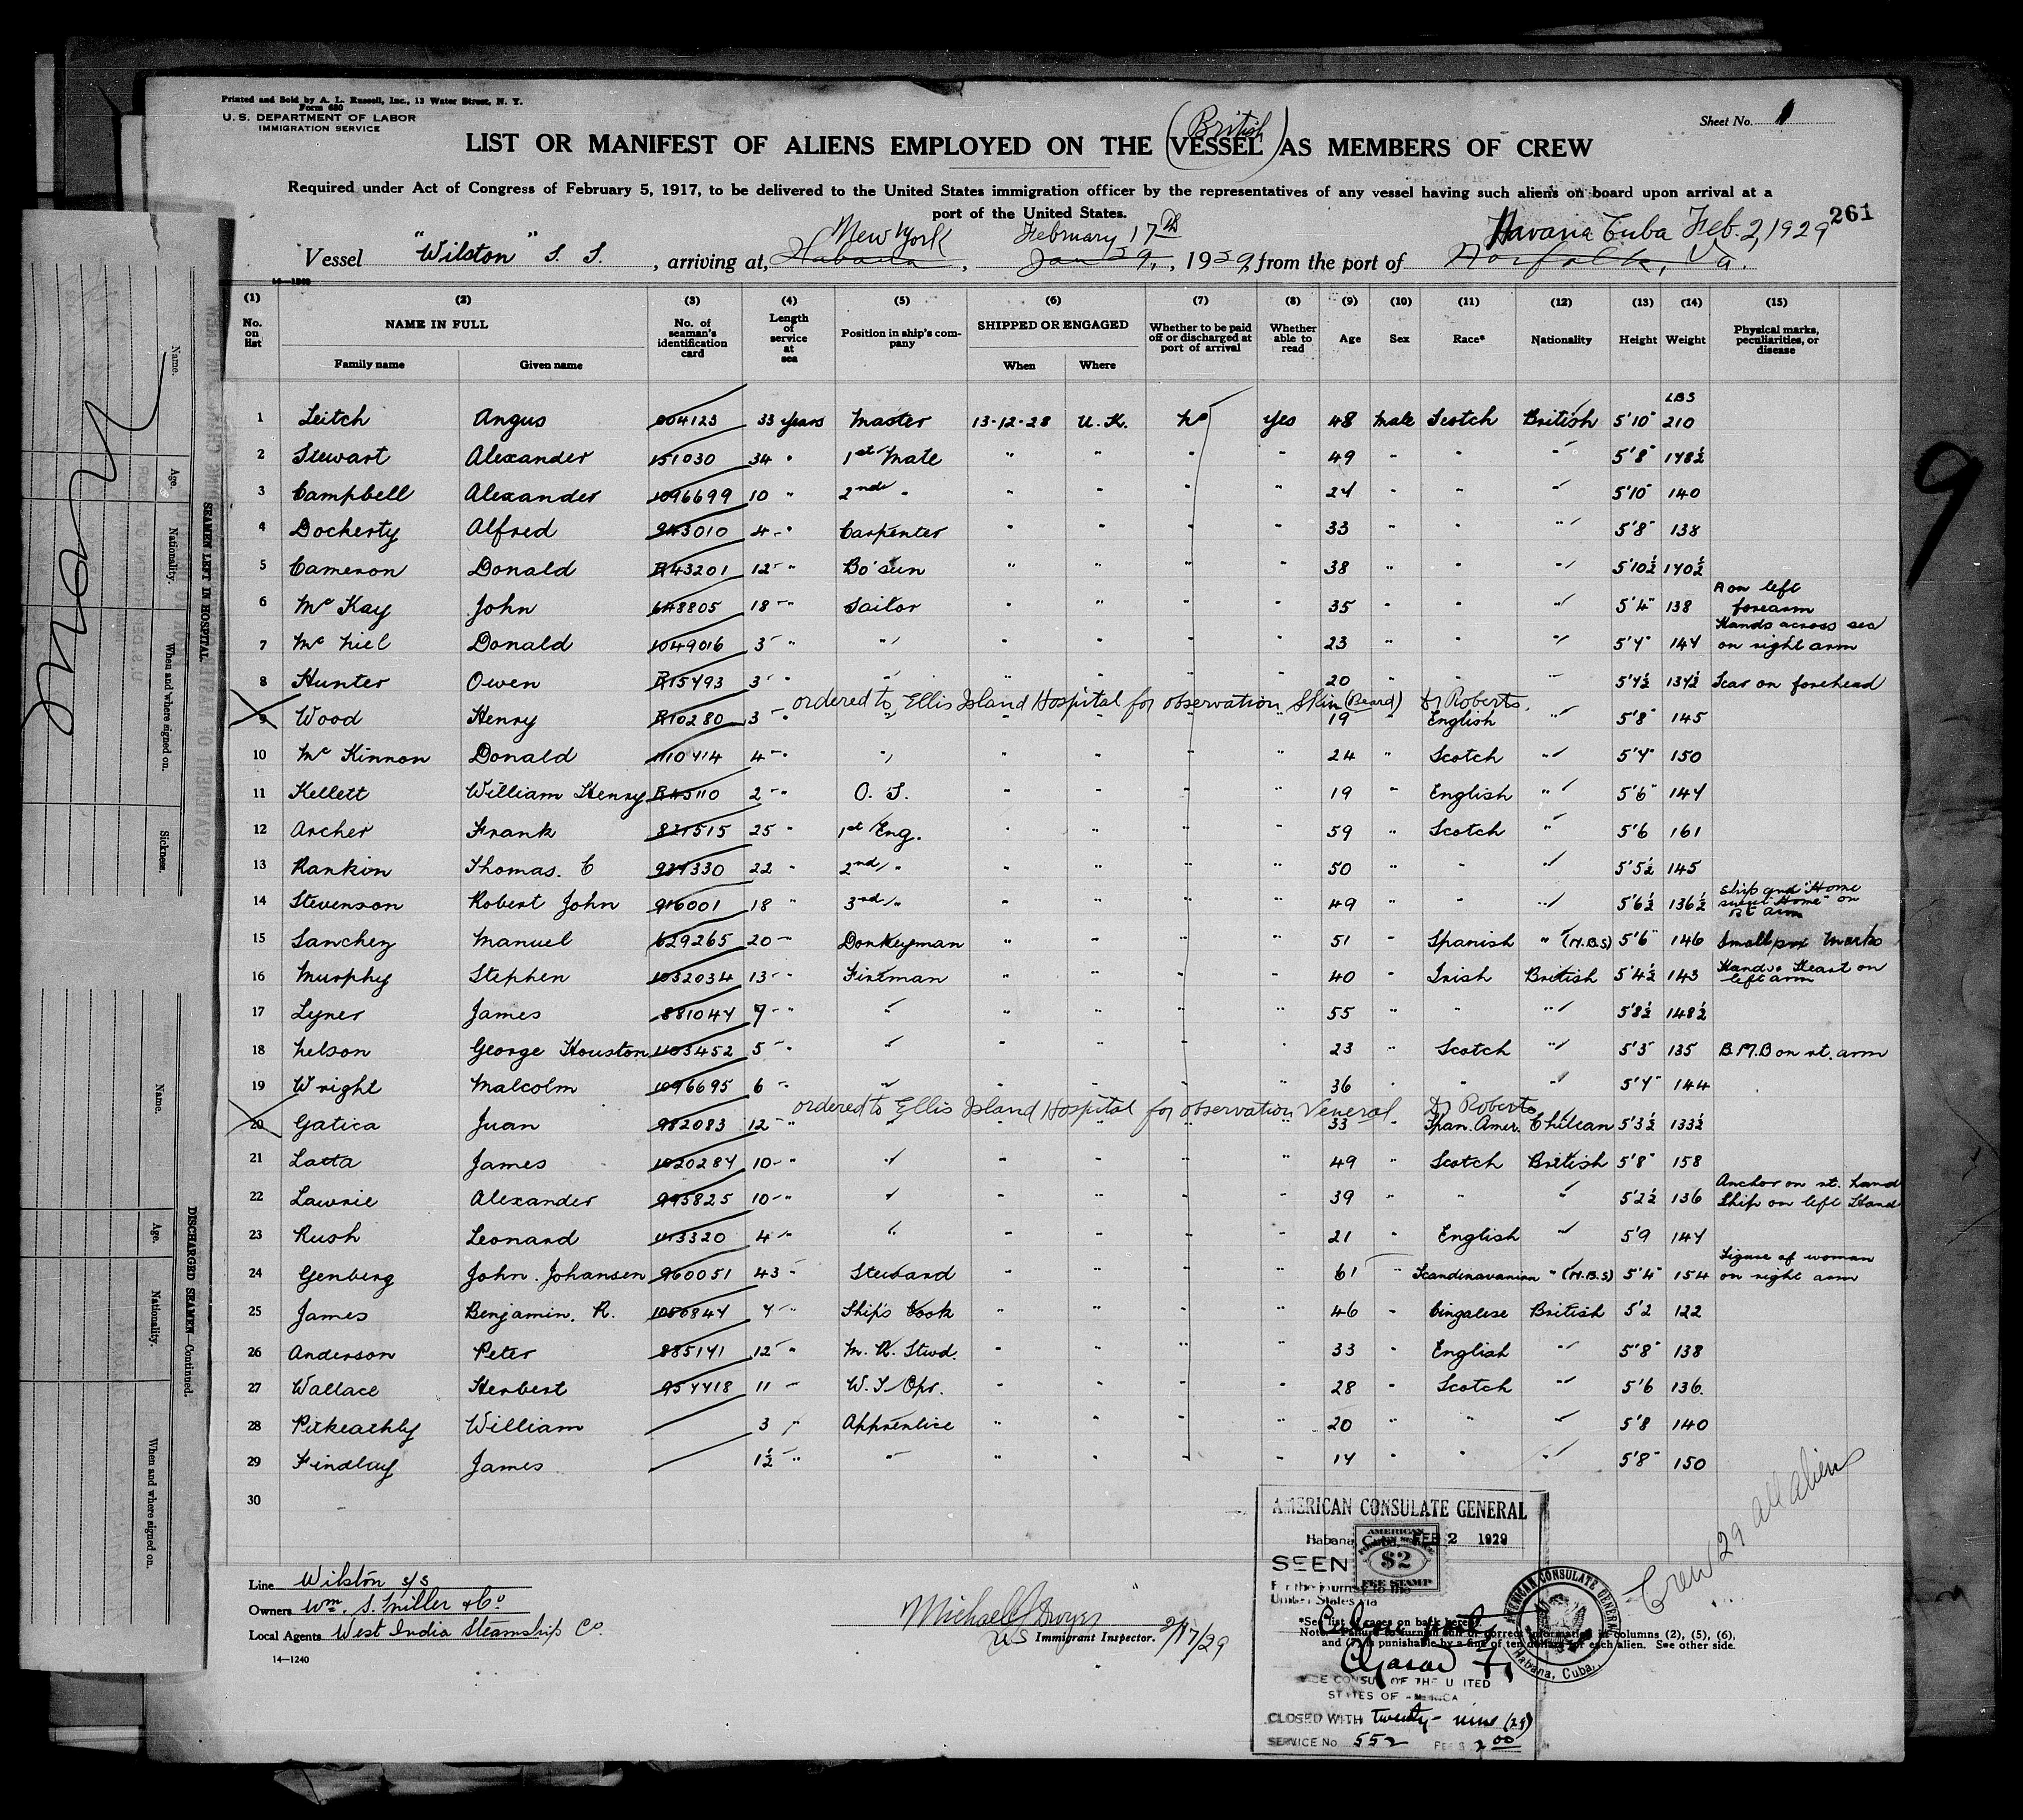 Printed and Sold by A. L. Russell, Inc., 13 Water Street, N. Y.
Form 680
U. S. DEPARTMENT OF LABOR
IMMIGRATION SERVICE
Sheet No. 1
(British)
LIST OR MANIFEST OF ALIENS EMPLOYED ON THE VESSEL AS MEMBERS OF CREW
Required under Act of Congress of February 5, 1917, to be delivered to the United States immigration officer by the representatives of any vessel having such aliens on board upon arrival at a
port of the United States.
261
New York February 17th Havana Cuba Feb. 2, 1929
Vessel "Wilston" S. S., arriving at, Habana, Jan 29, 1929, from the port of Norfolk, Va.
14—1240
(1) (2) (3) (4) (5) (6) (7) (8) (9) (10) (11) (12) (13) (14) (15)
No. on list NAME IN FULL No. of seaman's identification card Length of service at sea Position in ship's company SHIPPED OR ENGAGED Whether to be paid off or discharged at port of arrival Whether able to read Age Sex Race* Nationality Height Weight Physical marks, peculiarities, or disease
Family name Given name When Where
LBS
1 Leitch Angus 004123 33 years Master 13-12-28 U.K. No Yes 48 Male Scotch British 5'10" 210
2 Stewart Alexander 151030 34 " 1st Mate " " " " 49 " " " 5'8" 178½
3 Campbell Alexander 1096699 10 " 2nd " " " " " 24 " " " 5'10" 140
4 Docherty Alfred 943010 4 " Carpenter " " " " 33 " " " 5'8" 138
5 Cameron Donald R43201 12 " Bo'sun " " " " 38 " " " 5'10½ 170½
6 McKay John 648805 18 " Sailor " " " " 35 " " " 5'4" 138 A on left forearm
7 McNiel Donald 1049016 3 " " " " " " 23 " " " 5'7" 147 Hands across sea on right arm
8 Hunter Owen R15793 3 " " " " " " 20 " " " 5'7½ 137½ Scar on forehead
ordered to Ellis Island Hospital for observation Skin (Beard) Dr Roberts.
9 Wood Henry R10280 3 " " " " " " 19 " English " 5'8" 145
10 McKinnon Donald 1110714 4 " " " " " " 24 " Scotch " 5'7" 150
11 Kellett William Henry R45110 2 " O. S. " " " " 19 " English " 5'6" 147
12 Archer Frank 821515 25 " 1st Eng. " " " " 59 " Scotch " 5'6 161
13 Rankin Thomas. C 927330 22 " 2nd " " " " " 50 " " " 5'5½ 145
14 Stevenson Robert John 916001 18 " 3rd " " " " " 49 " " " 5'6½ 136½ Ship and "Home sweet Home" on rt arm
15 Sanchez Manuel 629265 20 " Donkeyman " " " " 51 " Spanish " (N.B.S) 5'6" 146 Smallpox Marks
16 Murphy Stephen 1032034 13 " Fireman " " " " 40 " Irish British 5'4½ 143 Hand & Heart on left arm
17 Lyner James 881047 7 " " " " " " 55 " " " 5'8½ 148½
18 Nelson George Houston 1103452 5 " " " " " " 23 " Scotch " 5'5" 135 B.M.B on rt. arm
19 Wright Malcolm 1096695 6 " " " " " " 36 " " " 5'7" 144
ordered to Ellis Island Hospital for observation Veneral Dr Roberts
20 Gatica Juan 982083 12 " " " " " " 33 " Span. Amer. Chilean 5'3½ 133½
21 Latta James 1020287 10 " " " " " " 49 " Scotch British 5'8" 158
22 Lawrie Alexander 995825 10 " " " " " " 39 " " " 5'2½ 136 Anchor on rt. hand Ship on left Hand
23 Rush Leonard 4 " " " " " " 21 " English " 5'9 147
24 Genberg John. Johansen 960051 43 " Steward " " " " 61 " Scandinavanian " (N.B.S) 5'4" 154 Figure of woman on right arm
25 James Benjamin. R. 1086947 7 " Ship's Cook " " " " 46 " Cingalese British 5'2 122
26 Anderson Peter 885171 12 " M. R. Stwd. " " " " 33 " English " 5'8" 138
27 Wallace Herbert 957718 11 " W. T. Opr. " " " " 28 " Scotch " 5'6 136.
28 Pitkeathly William 3 " Apprentice " " " " 20 " " " 5'8 140
29 Findlay James 1½ " " " " " " 17 " " " 5'8" 150
30
Crew 29 all aliens
AMERICAN CONSULATE GENERAL
Habana, Cuba FEB 2 1929
SEEN
AMERICAN
$2
FEE STAMP
For the journey to the
United States via
VICE CONSUL OF THE UNITED
STATES OF AMERICA
CLOSED WITH twenty-nine (29)
SERVICE No 552 FEE $ 2.00
AMERICAN CONSULATE GENERAL
Habana, Cuba.
Line Wilston s/s
Owners Wm. S. Miller & Co
Local Agents West India Steamship Co.
14—1240
Michael J Dwyer
US Immigrant Inspector. 2/17/29
*See list of races on back hereof.
Note.—Failure to furnish full or correct information in columns (2), (5), (6),
and (7) is punishable by a fine of ten dollars for each alien. See other side.
9
SEAMEN LEFT IN HOSPITAL.
Name. Age. Nationality. When and where signed on. Sickness.
None
DISCHARGED SEAMEN—Continued.
Name. Age. Nationality. When and where signed on.